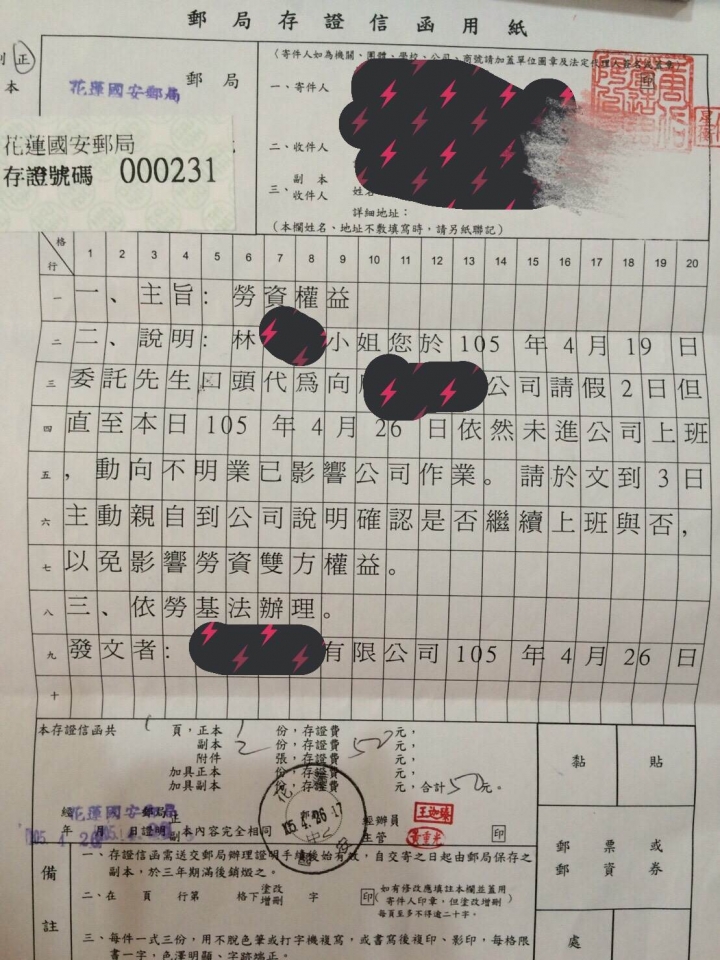 郵局存證信函用紙
正
副
本
郵局
花蓮國安郵局
花蓮國安郵局
存證號碼 000231
(寄件人如為機關、團體、學校、公司、商號請加蓋單位圖章及法定代理人簽名或蓋章)
一、寄件人
印
二、收件人
三、副本收件人
姓名
詳細地址:
(本欄姓名、地址不敷填寫時,請另紙聯記)
格 行 1 2 3 4 5 6 7 8 9 10 11 12 13 14 15 16 17 18 19 20
一 一、主旨:勞資權益
二 二、說明:林 小姐您於 105 年 4 月 19 日
三 委託先生口頭代為向 公司請假 2 日但
四 直至本日 105 年 4 月 26 日依然未進公司上班
五 ,動向不明業已影響公司作業。請於文到 3 日
六 主動親自到公司說明確認是否繼續上班與否,
七 以免影響勞資雙方權益。
八 三、依勞基法辦理。
九 發文者: 有限公司 105 年 4 月 26 日
十
本存證信函共 1 頁,正本 1 份,存證費 元,
副本 2 份,存證費 50 元,
附件 張,存證費 元,
加具正本 份,存證費 元,
加具副本 份,存證費 元,合計 50 元。
黏 貼
經 花蓮國安郵局 郵局
年 月 日證明 正本副本內容完全相同
105. 4. 26
105.4.26.17
經辦員
主管
印
郵票或
郵資券
處
備註
一、存證信函需送交郵局辦理證明手續後始有效,自交寄之日起由郵局保存之
副本,於三年期滿後銷燬之。
二、在 頁 行第 格下塗改增刪 字 印
(如有修改應填註本欄並蓋用
寄件人印章,但塗改增刪)
每頁至多不得逾二十字。
三、每件一式三份,用不脫色筆或打字機複寫,或書寫後複印、影印,每格限
書一字,色澤明顯、字跡端正。